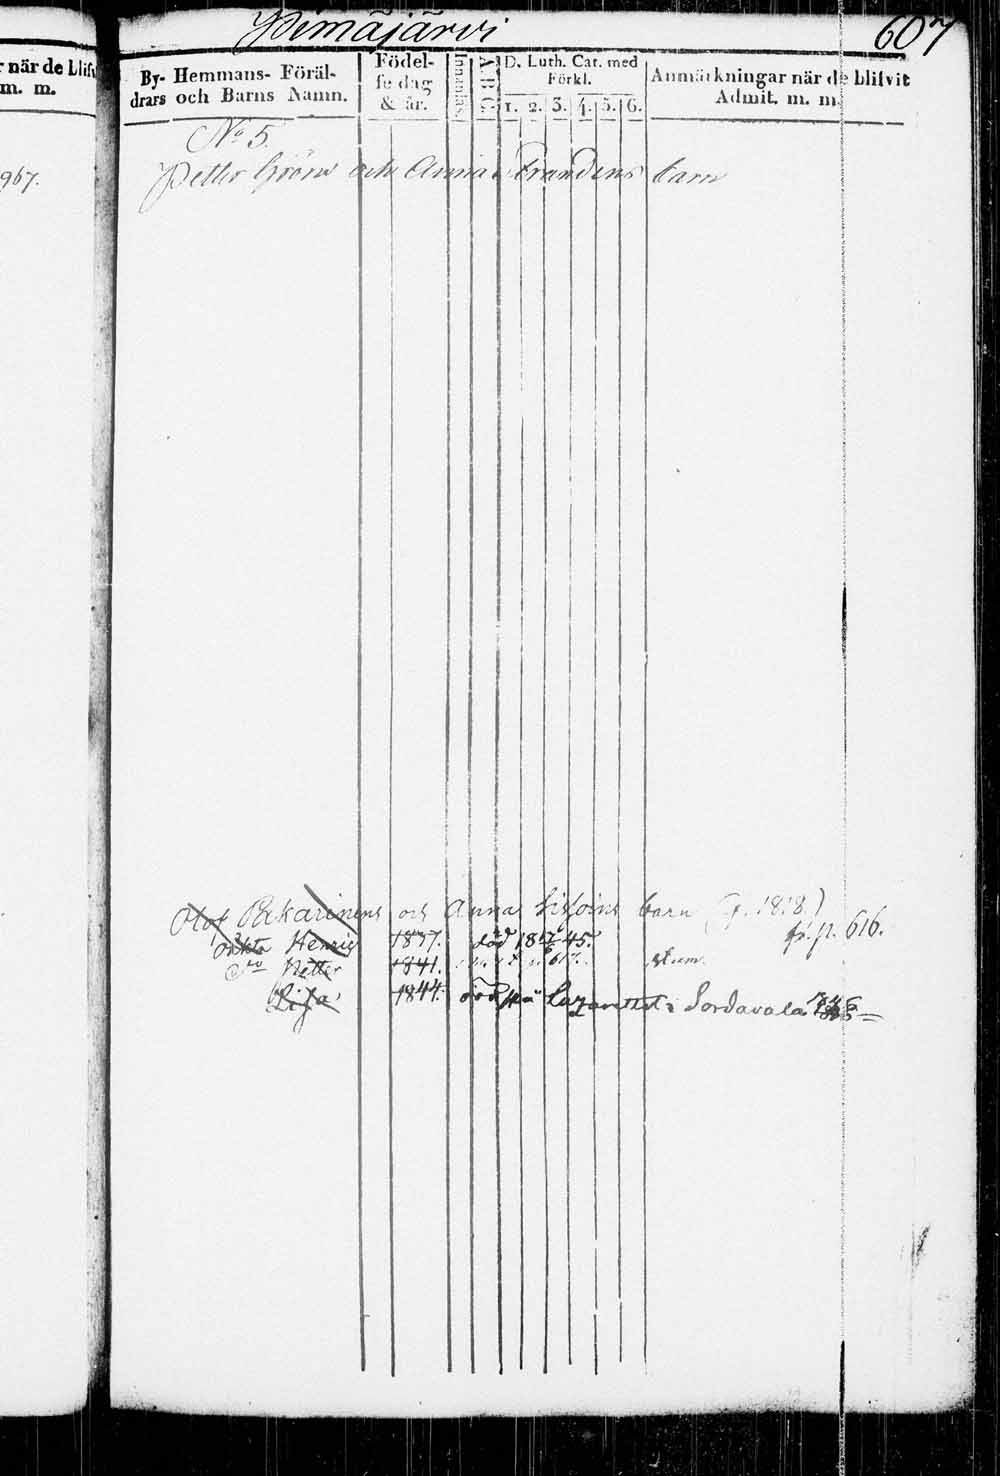 Pimäjärvi
607
r när de blifv
m. m.
967.
By- Hemmans- Föräl-
drars och Barns Namn.
Födel-
se dag
& år.
Innanläs.
A.B.C.
D. Luth. Cat. med
Förkl.
1. 2. 3. 4. 5. 6.
Anmärkningar när de blifvit
Admit. m. m.
No 5.
Petter Gröns och Anna barn
Olof Pakarinens och Anna barn (g. 1818)
fr. p. 616.
Henric 1837. död 1845.
Do Petter 1841.
Lisa 1844. död på Lazarettet i Sordavala